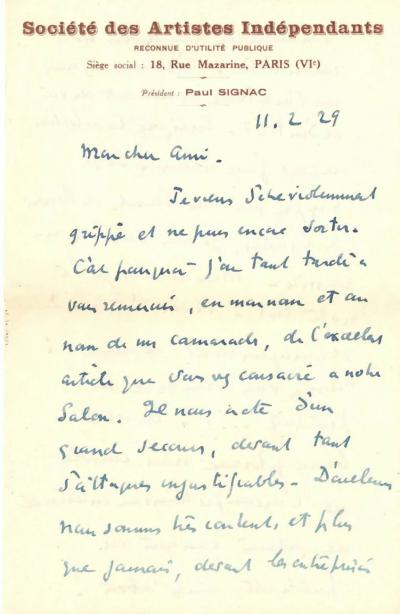 Société des Artistes Indépendants
RECONNUE D'UTILITÉ PUBLIQUE
Siège social : 18, Rue Mazarine, PARIS (VIᵉ)
Président : Paul SIGNAC
11. 2 29
Mon cher Ami.
Je viens d'être violemment
grippé et ne puis encore sortir.
C'est pourquoi j'ai tant tardé à
vous remercier, en mon nom et au
nom de mes camarades, de l'excellent
article que vous avez consacré à notre
Salon. Il nous a été d'un
grand secours, devant tant
d'attaques injustifiables - D'ailleurs
nous sommes très contents et plus
que jamais, devant les entreprises